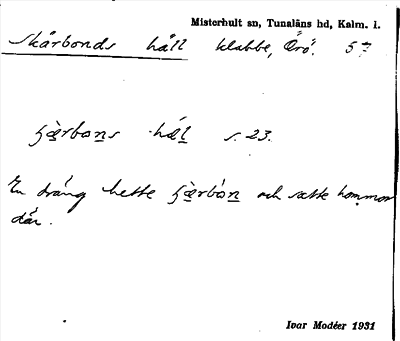 Misterhult sn, Tunaläns hd, Kalm. l.
Skärbonds häll klabbe, Örö. 57
ʃæ̀rbon̲s hæl̲ s. 23.
En dräng hette ʃæ̀rbón̲ och satte hommor
där.
Ivar Modéer 1931